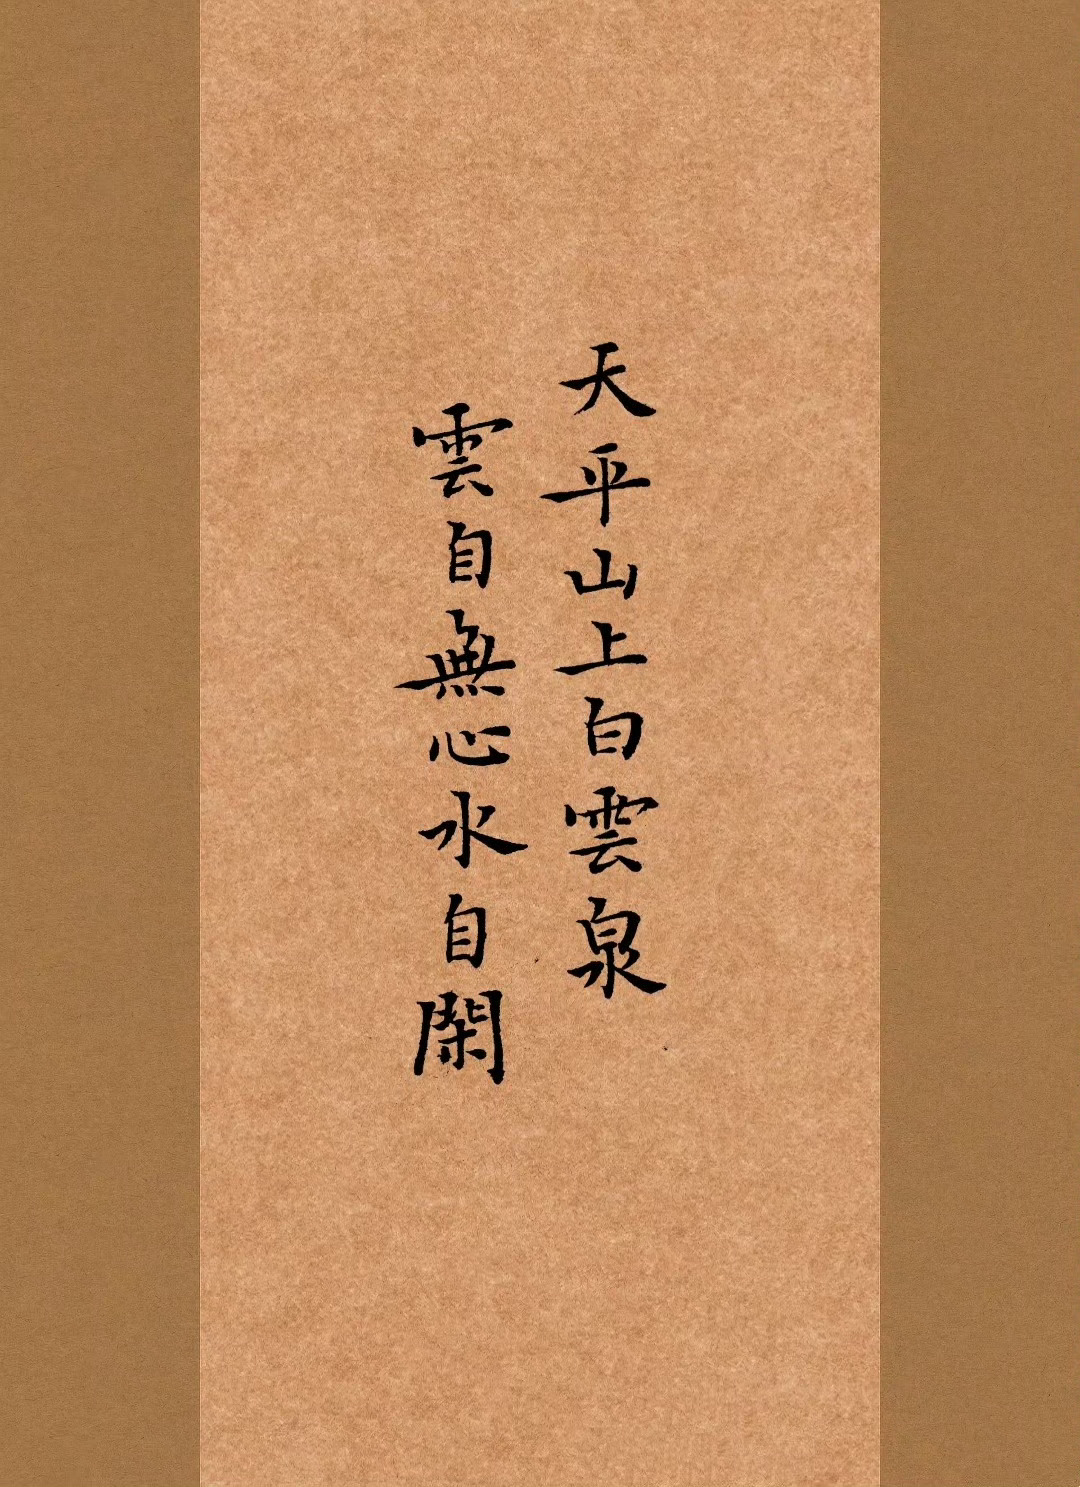 天平山上白雲泉
雲自無心水自閑